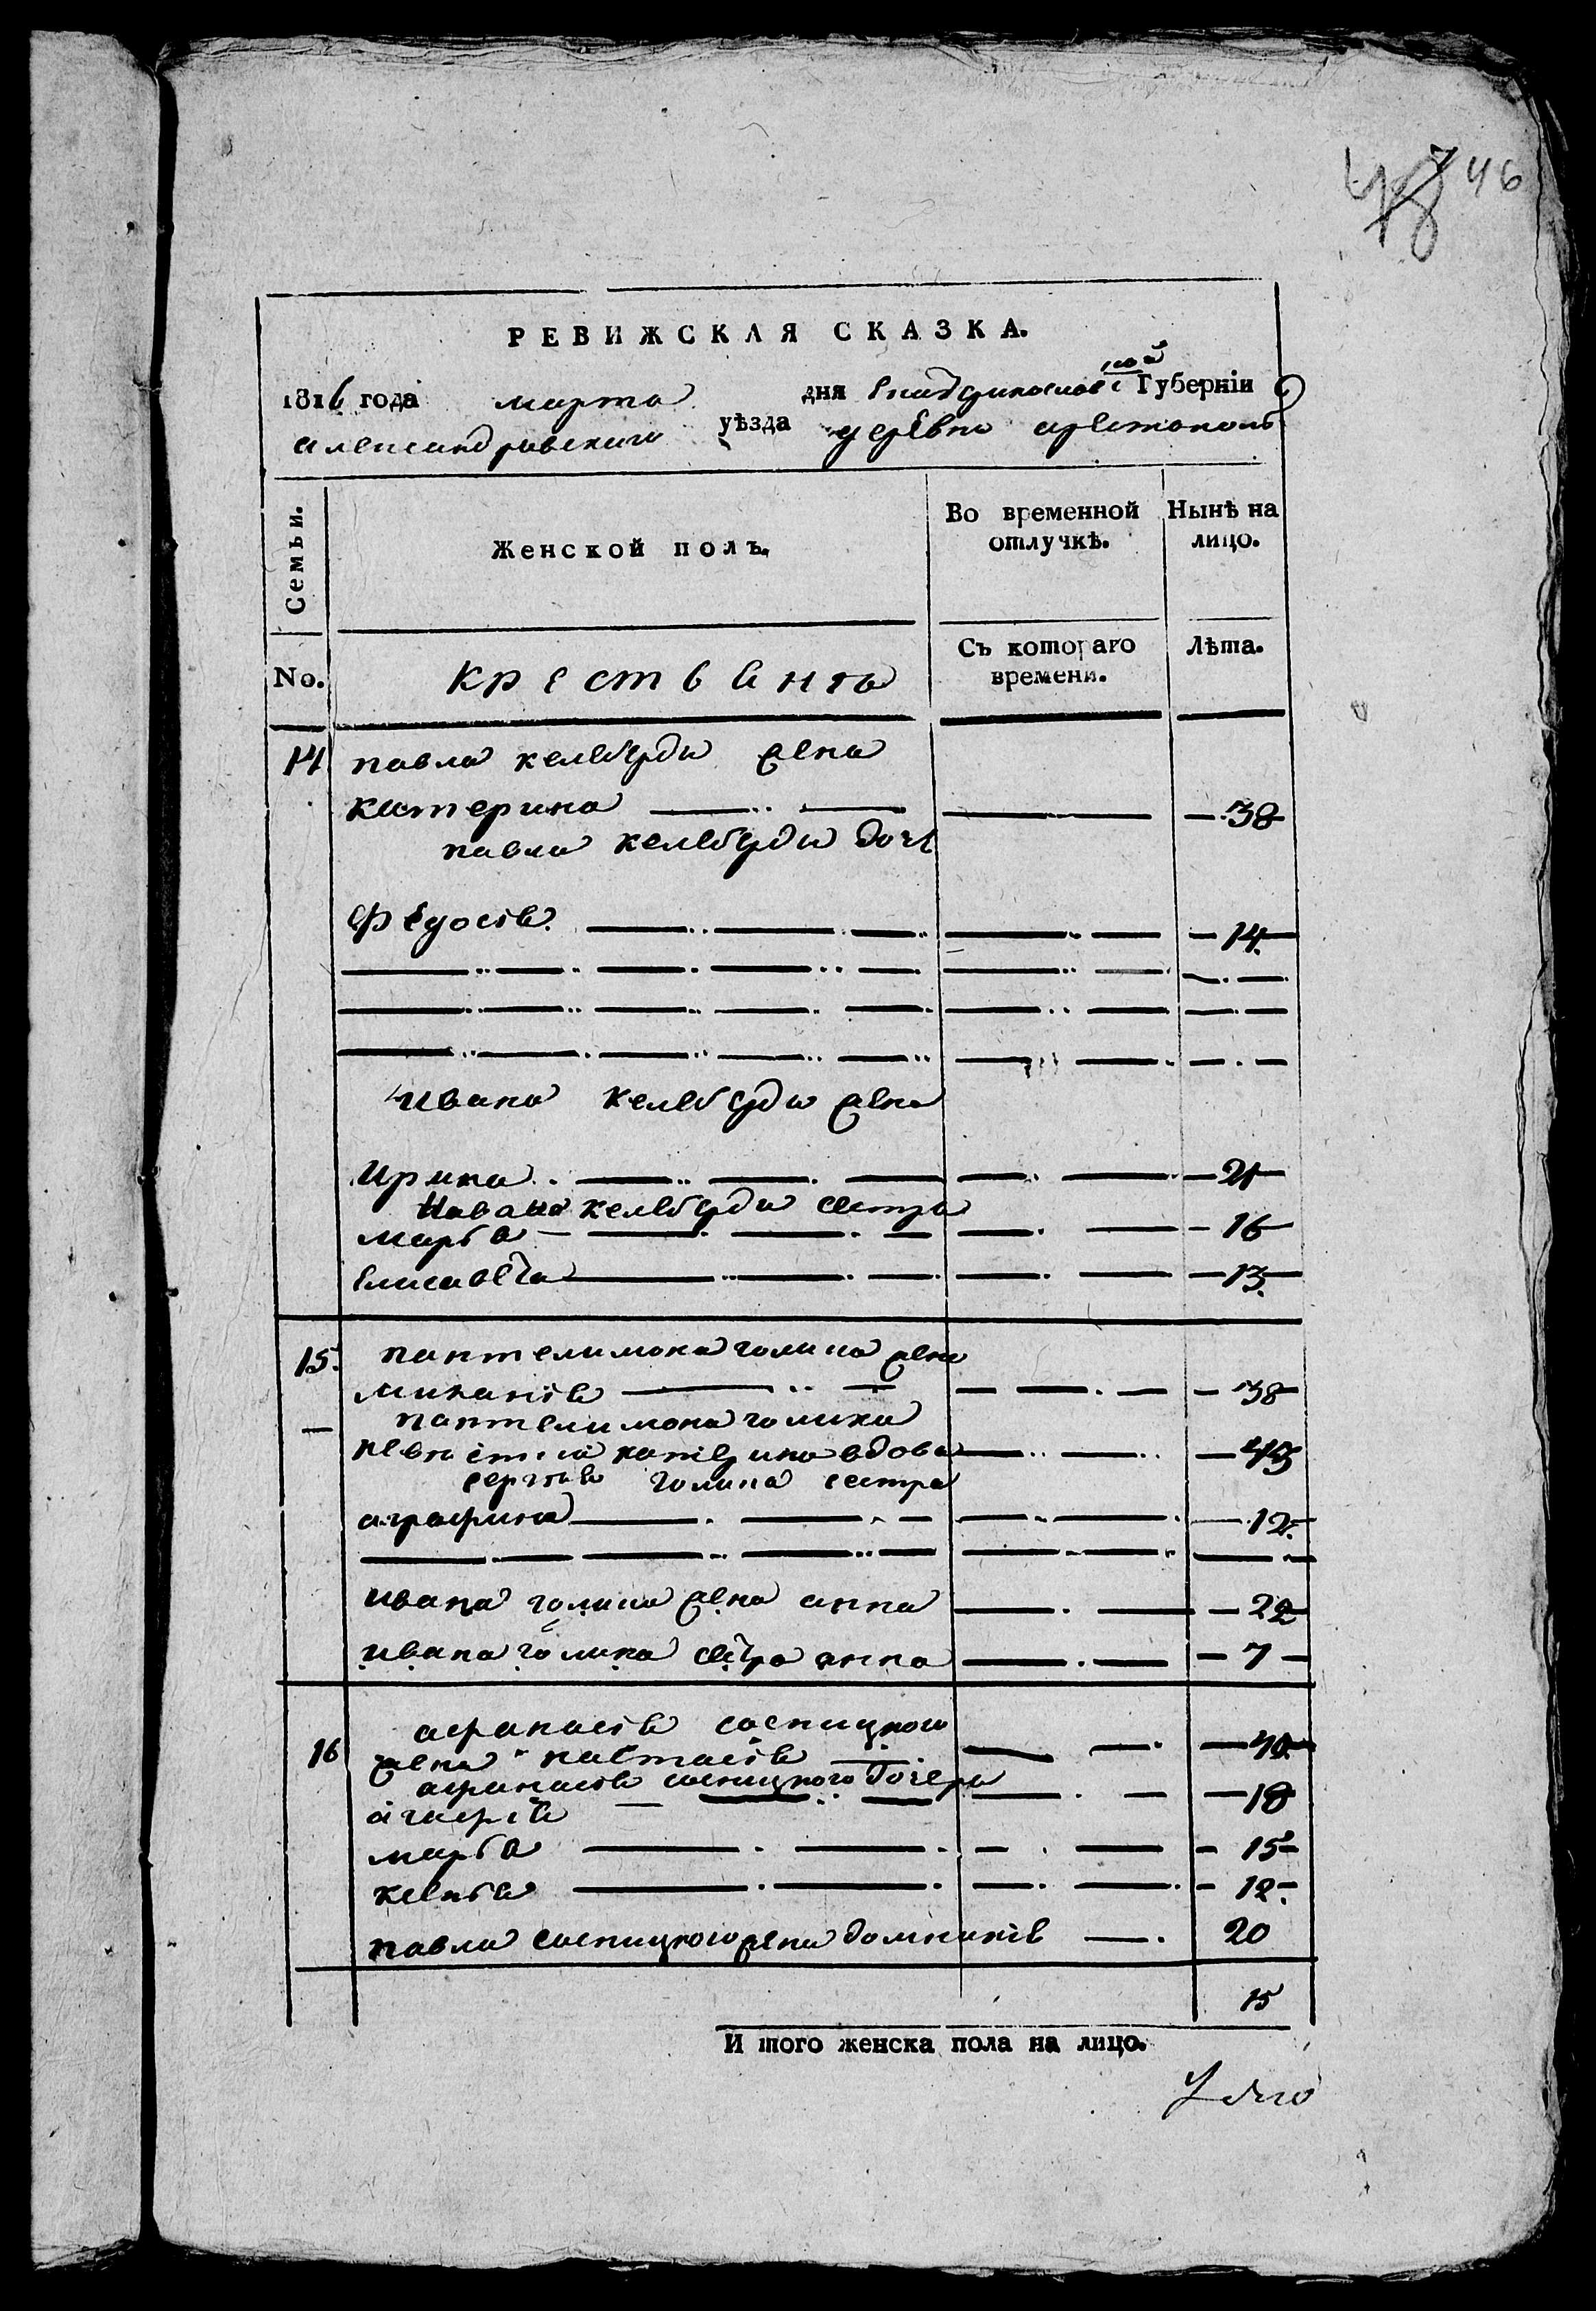 46
РЕВИЖСКАЯ СКАЗКА.
1816 года марта дня Екатеринослав ской Губерніи
александровского уѣзда деревни
Семьи.
Женской полъ.
Во временной отлучкѣ.
Нынѣ на лицо.
No.
Крестьянъ
Съ котораго времени.
Лѣта.
14 павла келеберди жена
катерина 38
павла келеберди дочь
Федосія 14
ивана келеберди жена
Ирина 21
Ивана келеберди сестры
марья 16
Елисавета 13
15. пантелимона голика жена
миланія 38
пантелимона голика
невѣстка катерина вдова 43
сергѣя голика сестра
аграфина 12
ивана голика жена анна 22
ивана голика сестра анна 7
16 афанасія сосницкого
жена настасія 40
афанасія сосницкого дочери
агафія 18
марья 15
ксенья 12
павла сосницкого жена домникія 20
15
И того женска пола на лицо.